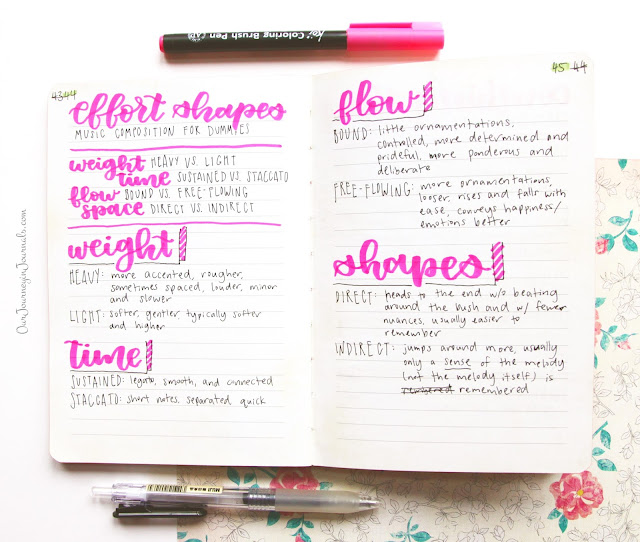 Koi Coloring Brush Pen
43 44
effort shapes
MUSIC COMPOSITION FOR DUMMIES
weight HEAVY VS. LIGHT
time SUSTAINED VS. STACCATO
flow BOUND VS. FREE-FLOWING
space DIRECT VS. INDIRECT
weight
HEAVY: more accented, rougher,
sometimes spaced, louder, minor
and slower
LIGHT: softer, gentler, typically softer
and higher
time
SUSTAINED: legato, smooth, and connected
STACCATO: short notes, separated, quick
45 44
flow
BOUND: little ornamentations,
controlled, more determined and
prideful, more ponderous and
deliberate
FREE-FLOWING: more ornamentations,
looser, rises and falls with
ease, conveys happiness/
emotions better
shapes
DIRECT: heads to the end w/o beating
around the bush and w/ fewer
nuances, usually easier to
remember
INDIRECT: jumps around more, usually
only a sense of the melody
(not the melody itself) is
remembered
OurJourneyinJournals.com